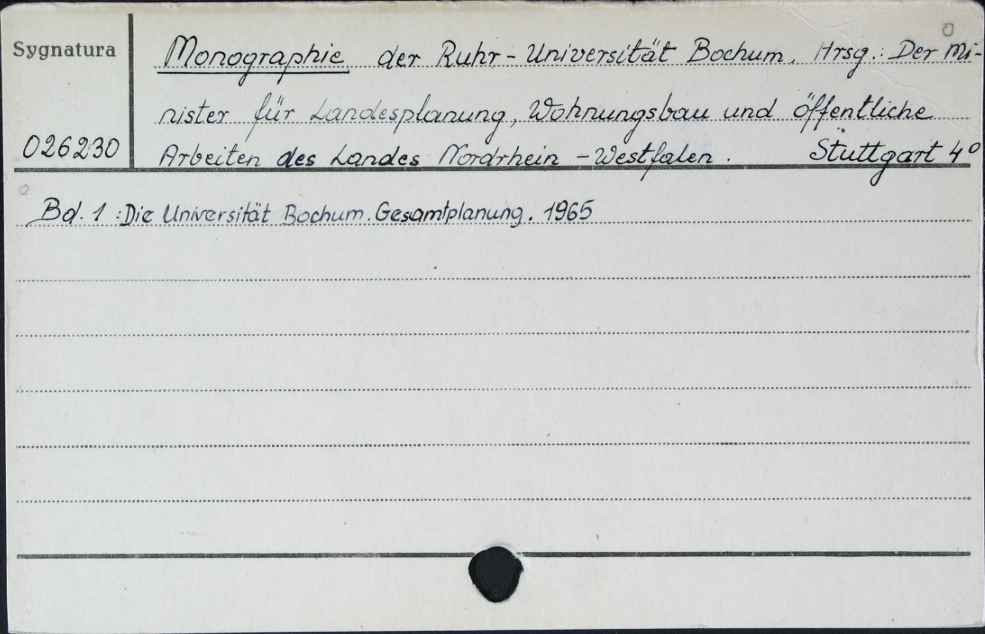 Sygnatura
026230
Monographie der Ruhr-Universität Bochum. Hrsg.: Der Mi-
nister für Landesplanung, Wohnungsbau und öffentliche
Arbeiten des Landes Nordrhein-Westfalen. Stuttgart 4°
Bd. 1: Die Universität Bochum. Gesamtplanung. 1965